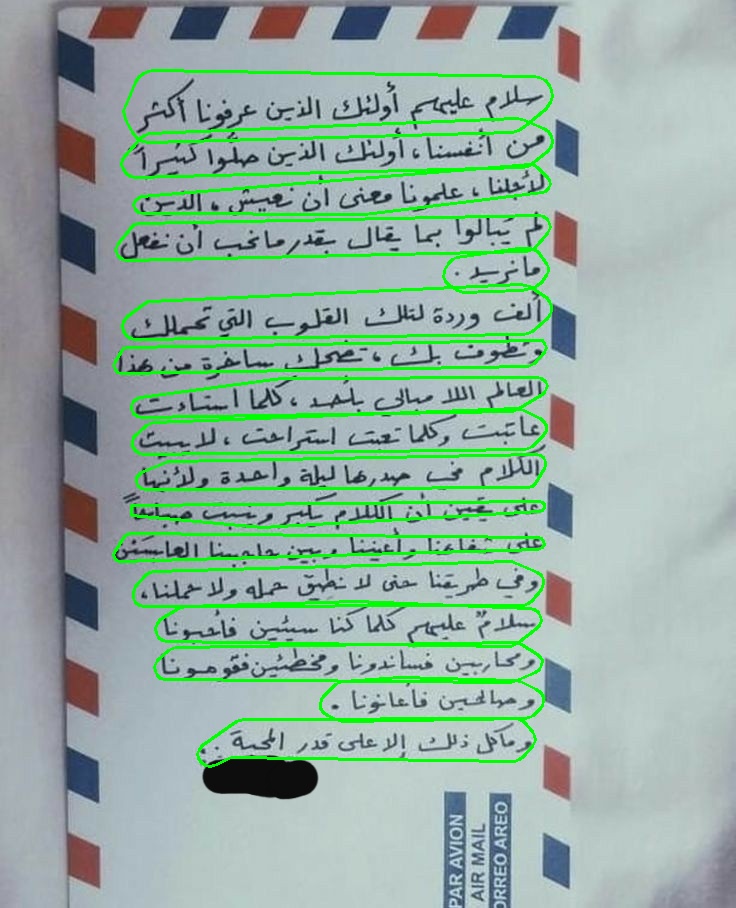 سلام عليهم أولئك الذين عرفونا أكثر
من أنفسنا، أولئك الذين صلّوا كثيراً
لأجلنا، علمونا معنى أن نعيش، الذين
لم يبالوا بما يقال بقدر ما نحب أن نفعل
ما نريد.
ألف وردة لتلك القلوب التي تحملك
وتطوف بك، تضحك ساخرة من هذا
العالم اللا مبالي بأحد، كلما استاءت
عاتبت وكلما تعبت استراحت، لا يبيت
الكلام في صدرها ليلة واحدة ولأنها
على يقين أن الكلام يكبر ويسبب
على شفاهنا وأعيننا وبين حاجبينا العابسين
وفي طريقنا حتى لا نطيق حمله ولا حملنا،
سلامٌ عليهم كلما كنا سيئين فأحبونا
ومحاربين فساندونا ومخطئين فقومونا
وصالحين فأعانونا.
وما كل ذلك إلا على قدر المحبة ..
PAR AVION
AIR MAIL
ORREO AREO